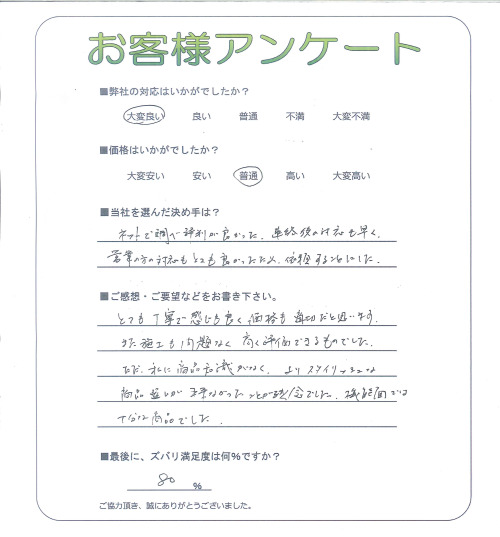 お客様アンケート
■弊社の対応はいかがでしたか?
大変良い 良い 普通 不満 大変不満
■価格はいかがでしたか?
大変安い 安い 普通 高い 大変高い
■当社を選んだ決め手は?
ネットで調べ評判が良かった。連絡後の対応も早く、
営業の方の対応もとても良かったため、依頼することにした。
■ご感想・ご要望などをお書き下さい。
とても丁寧で感じも良く価格も適切だと思います。
また施工も問題なく高く評価できるものでした。
ただ、私に商品知識がなく、よりスタイリッシュな
商品選びが出来なかったことが残念でした。機能面では
十分な商品でした。
■最後に、ズバリ満足度は何%ですか?
80 %
ご協力頂き、誠にありがとうございました。